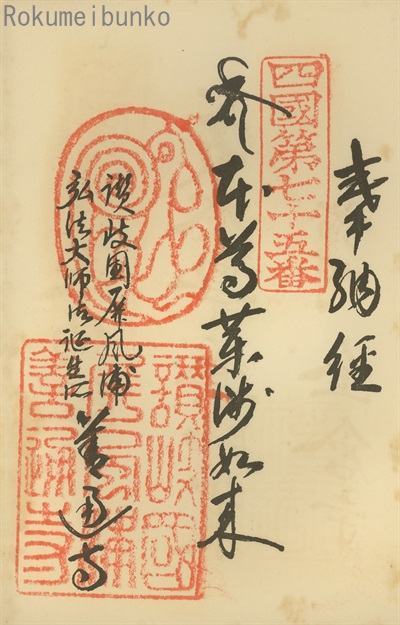 Rokumeibunko
奉納経
四國第七十五番
本尊薬師如来
讃岐国屏風浦
弘法大師御誕生所
善通寺
讃岐國
屏風浦
善通寺